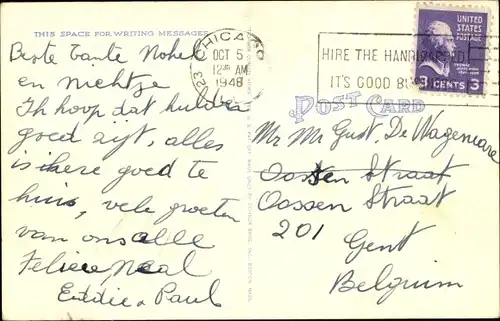 THIS SPACE FOR WRITING MESSAGES
Beste Tante Nohel
en Nichtje
Ih hoop dat hulder
goed zyt, alles
is here goed te
huis, vele groeten
van ons alle
Felicie Neal
Eddie & Paul
CHICAGO
OCT 5
12 30 AM
1948
HIRE THE HANDICAPPED
IT'S GOOD BUSINESS
UNITED
STATES
POSTAGE
3 CENTS 3
POST CARD
Mr Mr Gust, De Wagenaere
Oossen Straat
Oossen Straat
201
Gent
Belguim